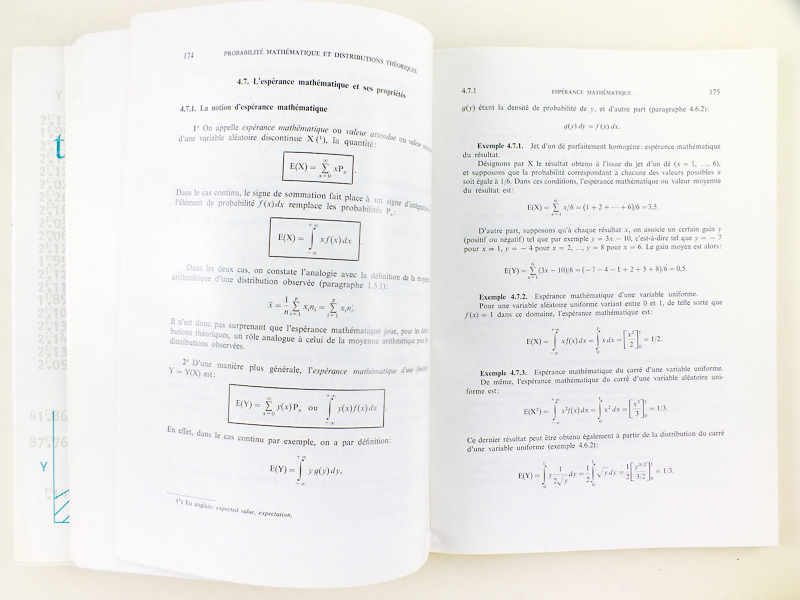 174 PROBABILITÉ MATHÉMATIQUE ET DISTRIBUTIONS THÉORIQUES
4.7. L'espérance mathématique et ses propriétés
4.7.1. La notion d'espérance mathématique
1° On appelle espérance mathématique ou valeur attendue ou valeur
d'une variable aléatoire discontinue X (¹), la quantité:
E(X) = ∑_{x=0}^{∞} xPₓ .
Dans le cas continu, le signe de sommation fait place à un signe d'intégration
l'élément de probabilité f(x) dx remplace les probabilités Pₓ:
E(X) = ∫_{−∞}^{+∞} x f(x) dx .
Dans les deux cas, on constate l'analogie avec la définition de la moyenne
arithmétique d'une distribution observée (paragraphe 1.5.1):
x̄ = 1/n ∑_{i=1}^{p} xᵢnᵢ = ∑_{i=1}^{p} xᵢn'ᵢ.
Il n'est donc pas surprenant que l'espérance mathématique joue, pour les
butions théoriques, un rôle analogue à celui de la moyenne arithmétique pour les
distributions observées.
2° D'une manière plus générale, l'espérance mathématique d'une fonction
Y = Y(X) est:
E(Y) = ∑_{x=0}^{∞} y(x) Pₓ ou ∫_{−∞}^{+∞} y(x) f(x) dx
En effet, dans le cas continu par exemple, on a par définition:
E(Y) = ∫_{−∞}^{+∞} y g(y) dy,
(¹) En anglais: expected value, expectation.
4.7.1 ESPÉRANCE MATHÉMATIQUE 175
g(y) étant la densité de probabilité de y, et d'autre part (paragraphe 4.6.2):
g(y) dy = f(x) dx.
Exemple 4.7.1. Jet d'un dé parfaitement homogène: espérance mathématique
du résultat.
Désignons par X le résultat obtenu à l'issue du jet d'un dé (x = 1, ..., 6),
et supposons que la probabilité correspondant à chacune des valeurs possibles x
soit égale à 1/6. Dans ces conditions, l'espérance mathématique ou valeur moyenne
du résultat est:
E(X) = ∑_{x=1}^{6} x/6 = (1 + 2 + ··· + 6)/6 = 3,5.
D'autre part, supposons qu'à chaque résultat x, on associe un certain gain y
(positif ou négatif) tel que par exemple y = 3x − 10, c'est-à-dire tel que y = − 7
pour x = 1, y = − 4 pour x = 2, ..., y = 8 pour x = 6. Le gain moyen est alors:
E(Y) = ∑_{x=1}^{6} (3x − 10)/6 = (−7 − 4 − 1 + 2 + 5 + 8)/6 = 0,5.
Exemple 4.7.2. Espérance mathématique d'une variable uniforme.
Pour une variable aléatoire uniforme variant entre 0 et 1, de telle sorte que
f(x) = 1 dans ce domaine, l'espérance mathématique est:
E(X) = ∫_{−∞}^{+∞} x f(x) dx = ∫_{0}^{1} x dx = [x²/2]₀¹ = 1/2.
Exemple 4.7.3. Espérance mathématique du carré d'une variable uniforme.
De même, l'espérance mathématique du carré d'une variable aléatoire uni-
forme est:
E(X²) = ∫_{−∞}^{+∞} x² f(x) dx = ∫_{0}^{1} x² dx = [x³/3]₀¹ = 1/3.
Ce dernier résultat peut être obtenu également à partir de la distribution du carré
d'une variable uniforme (exemple 4.6.2):
E(Y) = ∫_{0}^{1} y 1/(2√y) dy = 1/2 ∫_{0}^{1} √y dy = 1/2 [y^{3/2}/(3/2)]₀¹ = 1/3.
Y
t
41.86
87.76
Y